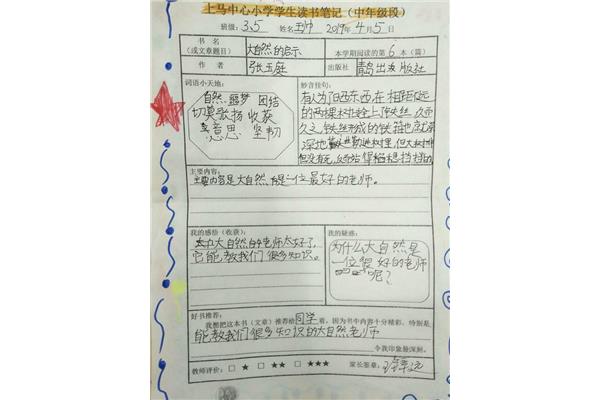 上马中心小学学生读书笔记（中年级段）
班级：3.5 姓名 2019年4月5日
书名（或文章题目） 大自然的启示 本学期阅读的第6本（篇）
作者 张玉庭 出版社 青岛出版社
词语小天地：
自然 噩梦 团结
切莫 张扬 收获
意思 坚韧
妙言佳句：
有人为了
的两棵木桩拴上铁丝，久而
久之，铁丝形成的铁箍也就深
深地勒进树里，但大树
但没有死，反而
主要内容：
主要内容是大自然，是一位最好的老师。
我的感悟（收获）：
大自然的老师太好了，
它能教我们很多知识。
我的疑惑：
为什么大自然是
一位很好的老师
呢？
好书推荐：
我想把这本书（文章）推荐给同学看，因为书中内容十分精彩，特别是
能教我们很多知识的大自然老师
令我印象最深刻。
教师评价：□★ □★★ □★★★ 家长签章：